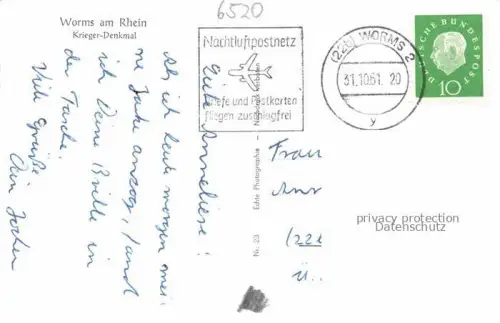 6520
Worms am Rhein
Krieger-Denkmal
Nachtluftpostnetz
Briefe und Postkarten
fliegen zuschlagfrei
(22b) WORMS 2
31.10.61. 20
y
DEUTSCHE BUNDESPOST
10
Liebe Anneliese!
Als ich heute morgen mei-
ne Jacke anzog, fand
ich Deine Brille in
der Tasche.
Viele Grüße
Dein Jochen
Nr. 23 Echte Photographie
Frau
(22
privacy protection
Datenschutz